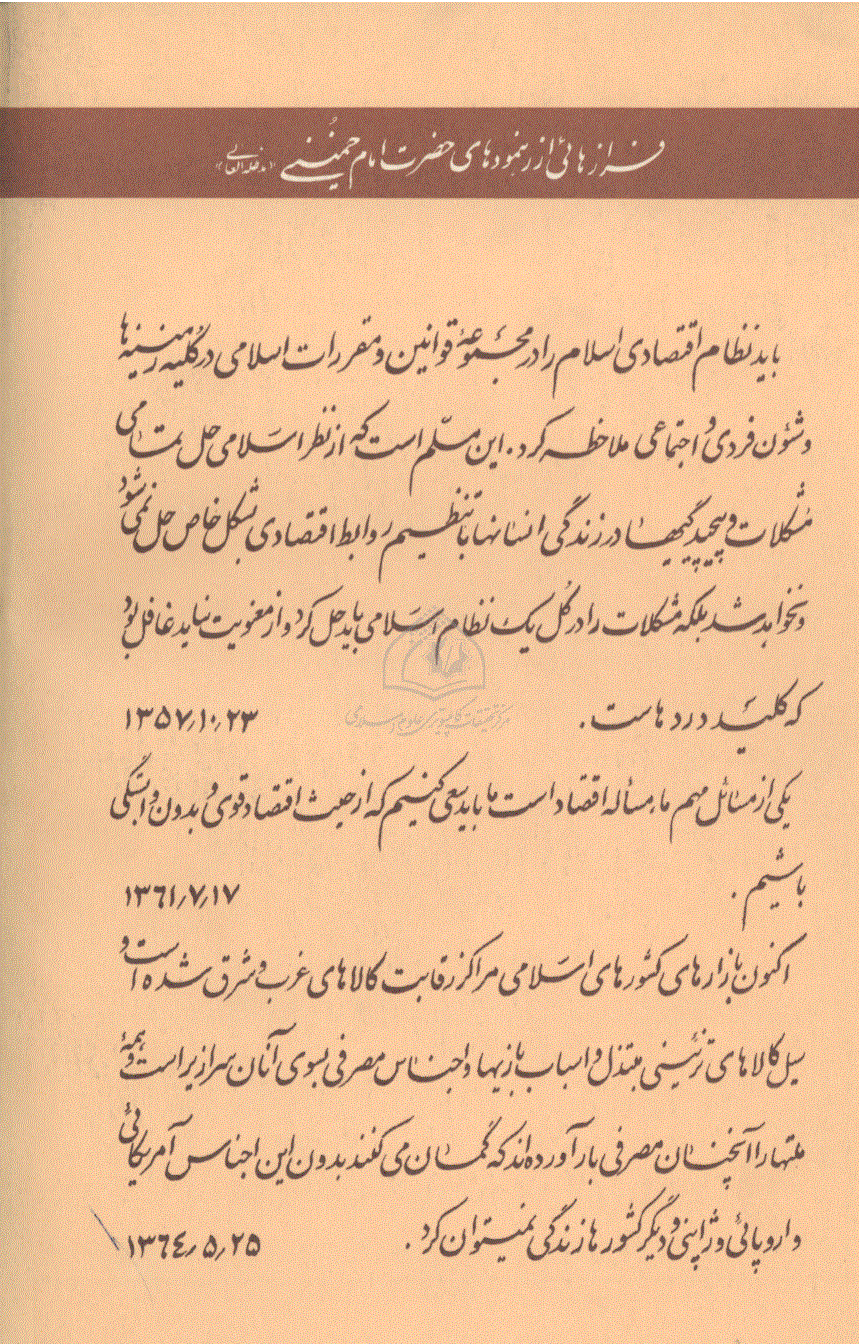 فرازهائی از رهنمودهای حضرت امام خمینی «مدظله‌العالی»
باید نظام اقتصادی اسلام را در مجموعهٔ قوانین و مقررات اسلامی در کلیه زمینه‌ها
و شئون فردی و اجتماعی ملاحظه کرد. این مسلّم است که از نظر اسلامی حل تمامی
مشکلات و پیچیدگیها در زندگی انسانها با تنظیم روابط اقتصادی بشکل خاص حل نمی‌شود
و نخواهد شد بلکه مشکلات را در کُل یک نظام اسلامی باید حل کرد و از معنویت نباید غافل بود
که کلید دردهاست. ۱۳۵۷٫۱۰٫۲۳
مرکز تحقیقات کامپیوتری علوم اسلامی
یکی از مسائل مهم ما، مسأله اقتصاد است ما باید سعی کنیم که از حیث اقتصاد قوی و بدون وابستگی
باشیم. ۱۳۶۱٫۷٫۱۷
اکنون بازارهای کشورهای اسلامی مراکز رقابت کالاهای غرب و شرق شده است و
سیل کالاهای تزئینی مبتذل و اسباب بازیها و اجناس مصرفی بسوی آنان سرازیر است و همهٔ
ملتها را آنچنان مصرفی بار آورده‌اند که گمان می‌کنند بدون این اجناس آمریکائی
و اروپائی و ژاپنی و دیگر کشورها زندگی نمیتوان کرد. ۱۳۶۴٫۵٫۲۵